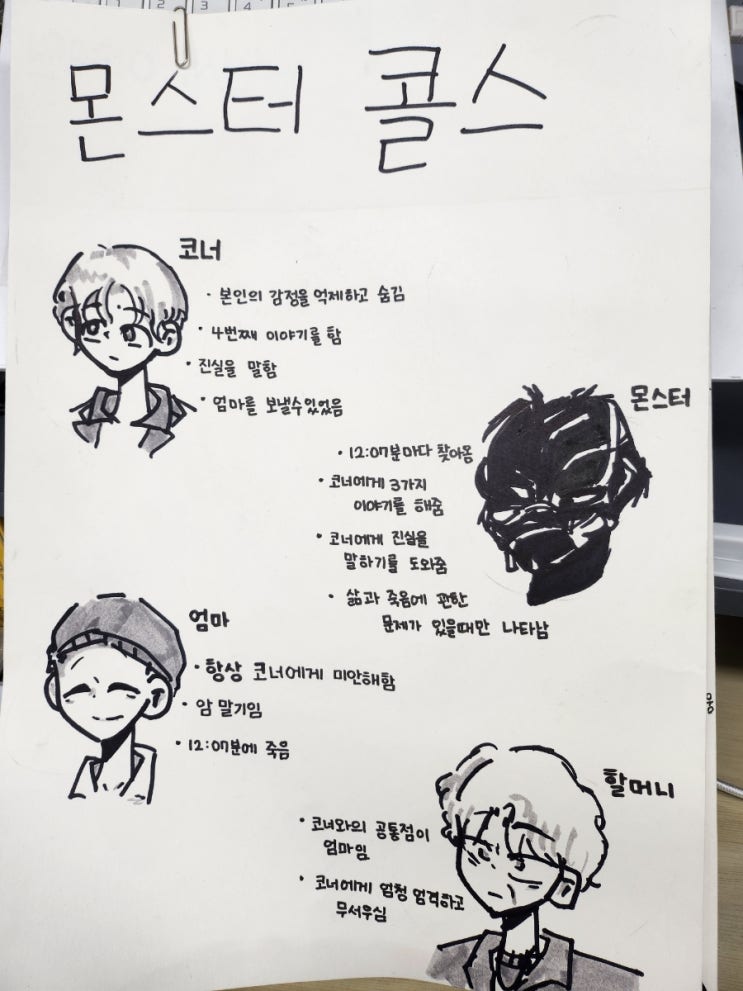 몬스터 콜스
코너
• 본인의 감정을 억제하고 숨김
• 4번째 이야기를 함
• 진실을 말함
• 엄마를 보낼수있었음
몬스터
• 12:07분마다 찾아옴
• 코너에게 3가지
이야기를 해줌
• 코너에게 진실을
말하기를 도와줌
• 삶과 죽음에 관한
문제가 있을때만 나타남
엄마
• 항상 코너에게 미안해함
• 암 말기임
• 12:07분에 죽음
할머니
• 코너와의 공통점이
엄마임
• 코너에게 엄청 엄격하고
무서우심